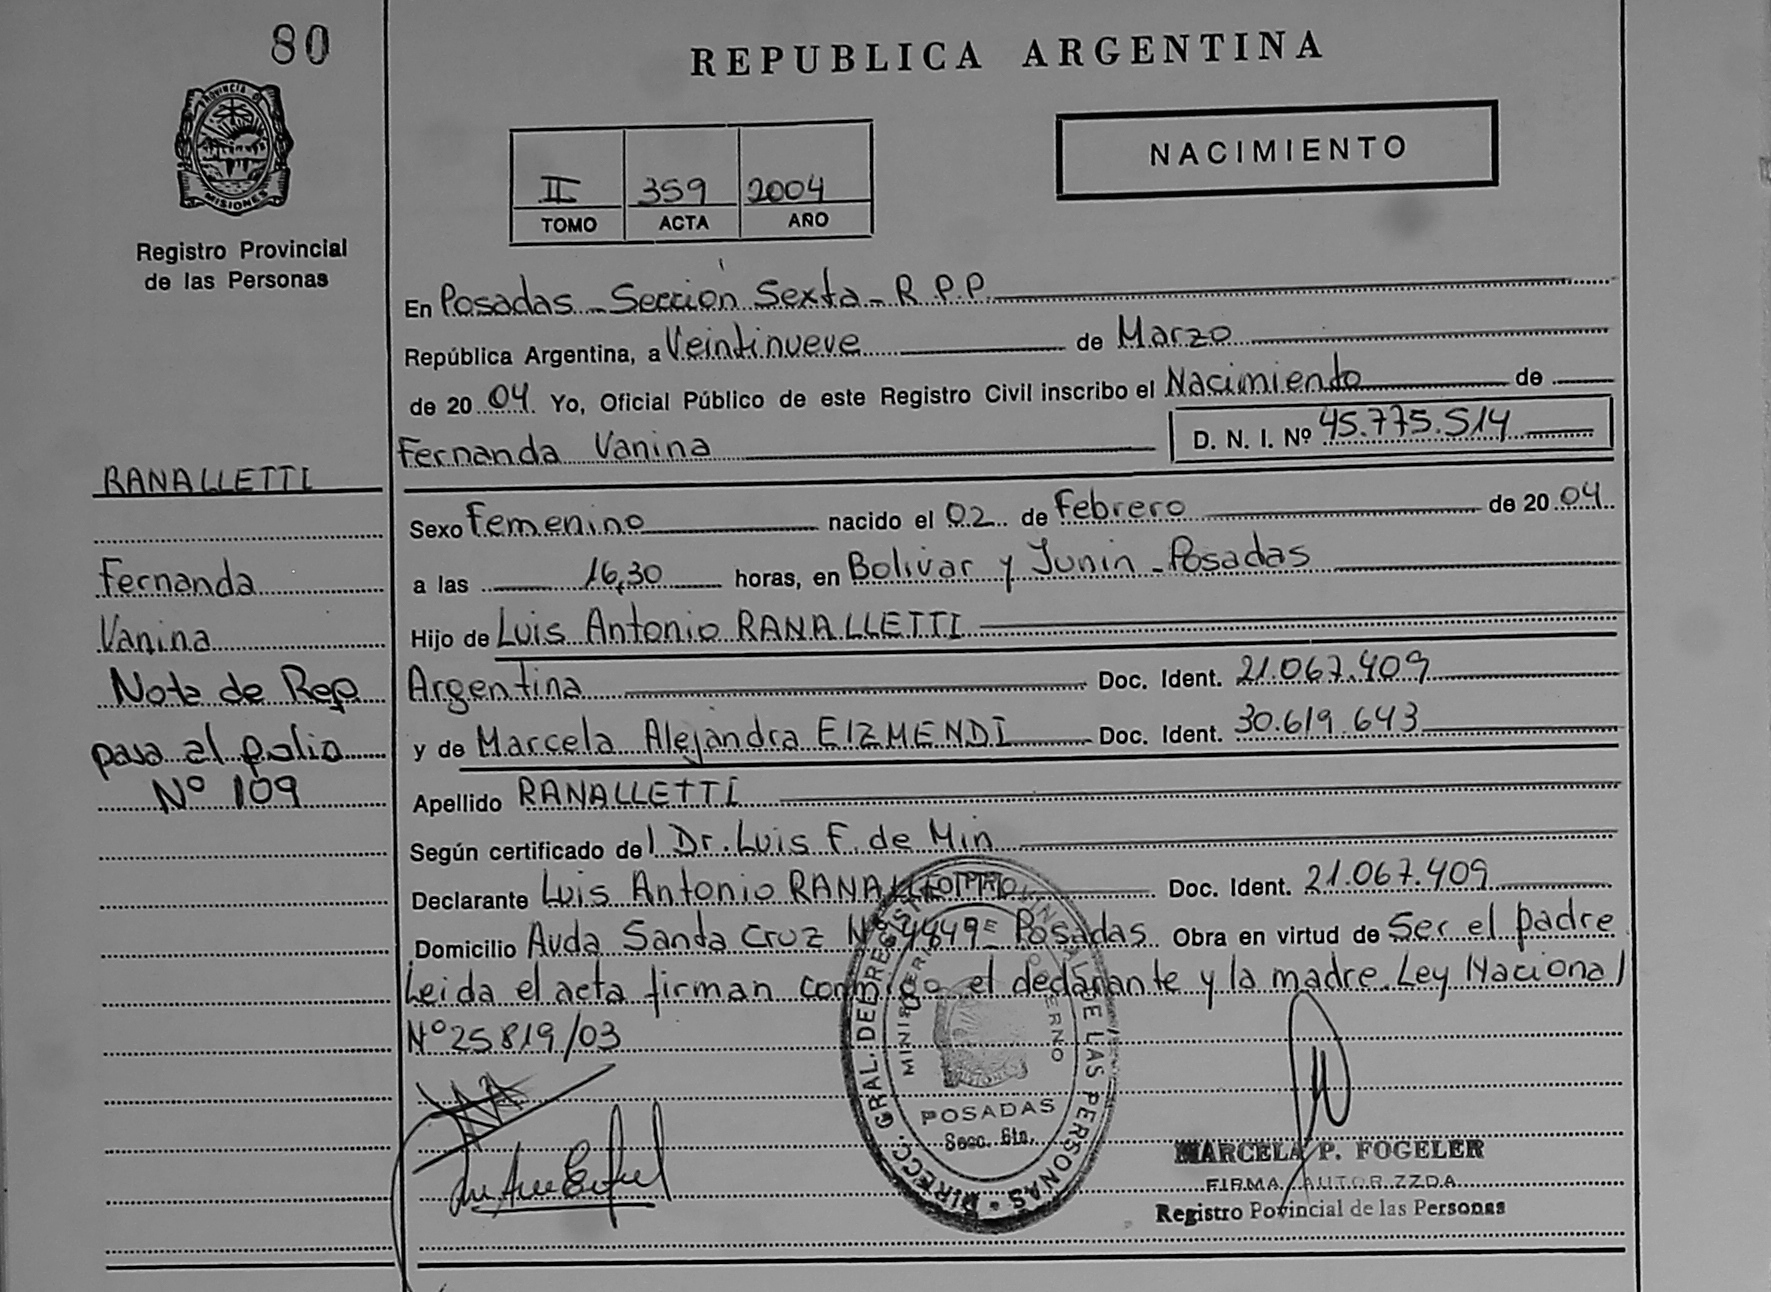 80
REPUBLICA ARGENTINA
PROVINCIA DE
MISIONES
Registro Provincial
de las Personas
NACIMIENTO
II 359 2004
TOMO ACTA AÑO
En Posadas - Sección Sexta - R.P.P.
República Argentina, a Veintinueve de Marzo
de 20 04 Yo, Oficial Público de este Registro Civil inscribo el Nacimiento de
Fernanda Vanina D. N. I. Nº 45.775.514
RANALLETTI
Fernanda
Vanina
Nota de Rep
pasa al folio
Nº 109
Sexo Femenino nacido el 02 de Febrero de 20 04
a las 16,30 horas, en Bolivar y Junin - Posadas
Hijo de Luis Antonio RANALLETTI
Argentina Doc. Ident. 21.067.409
y de Marcela Alejandra EIZMENDI Doc. Ident. 30.619.643
Apellido RANALLETTI
Según certificado del Dr. Luis F. de Min
Declarante Luis Antonio Doc. Ident. 21.067.409
Domicilio Avda Santa Cruz Nº Posadas Obra en virtud de Ser el padre
Leida el acta firman conmigo el declarante y la madre. Ley Nacional
Nº 25819/03
DIRECC. GRAL. DE DE LAS PERSONAS
POSADAS
Secc. 6ta.
MARCELA P. FOGELER
FIRMA AUTORIZZDA
Registro Povincial de las Personas